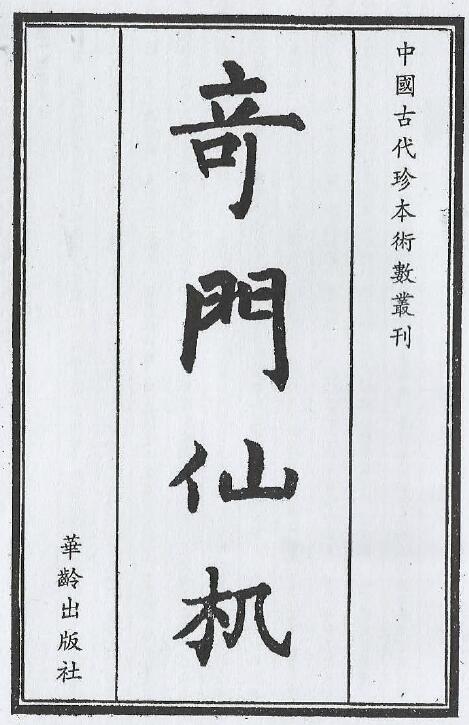 中國古代珍本術數叢刊
竒門仙机
華齡出版社